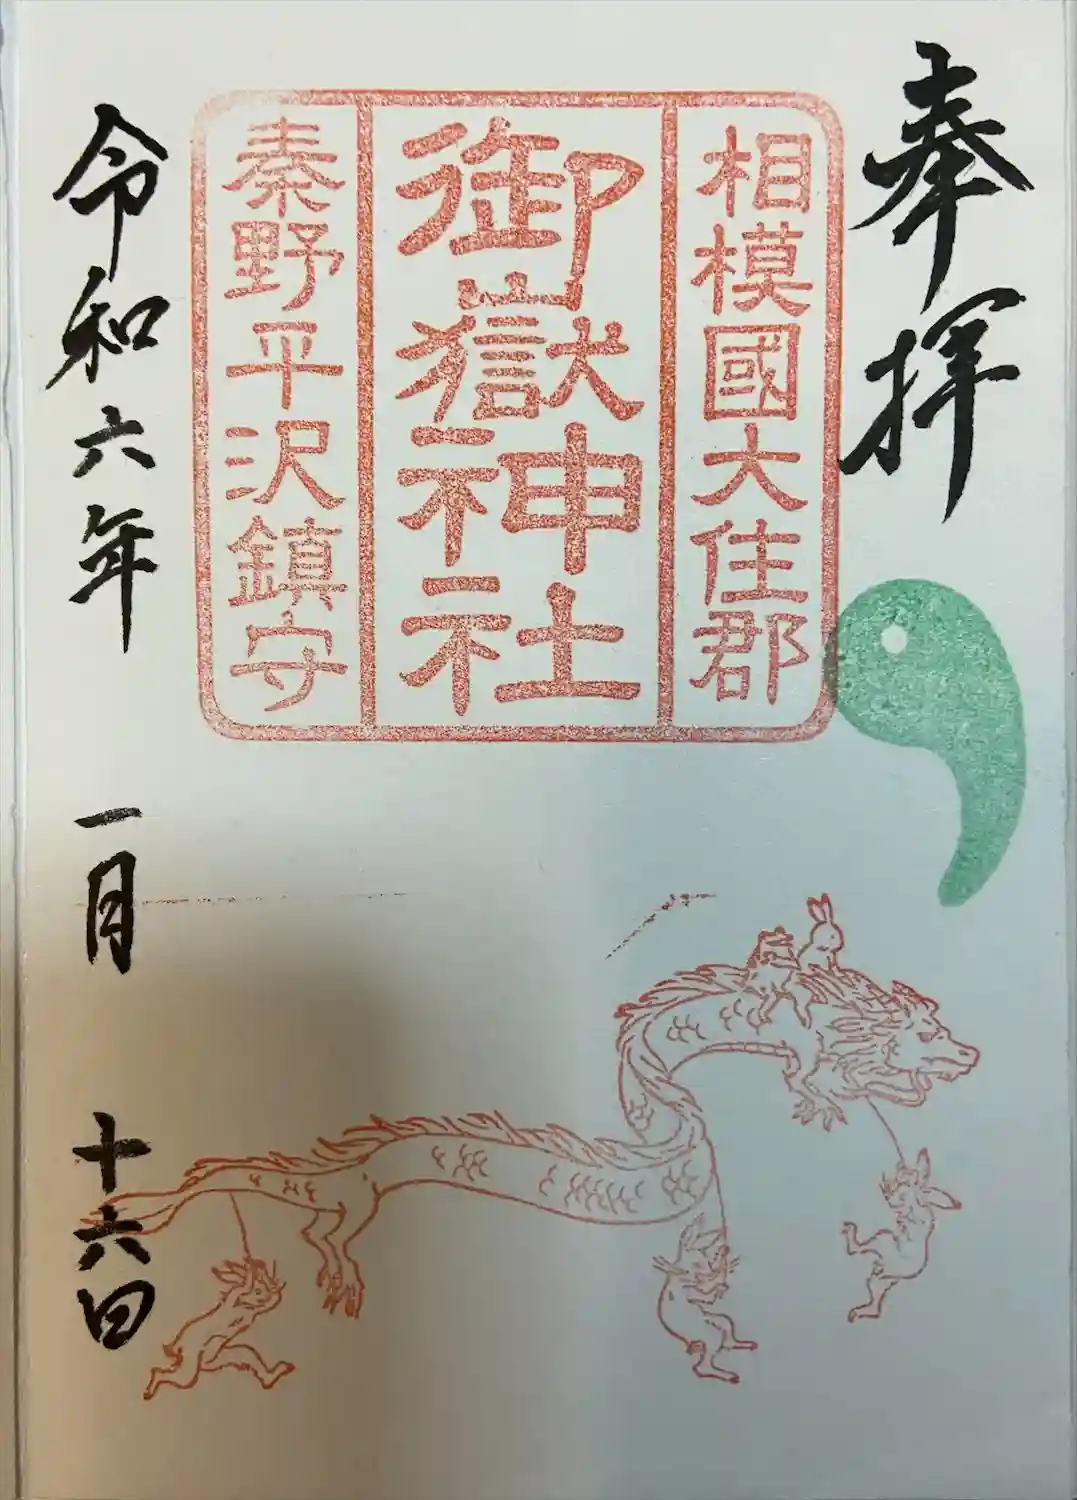 奉拝
相模國大住郡
御嶽神社
秦野平沢鎮守
令和六年 一月 十六日